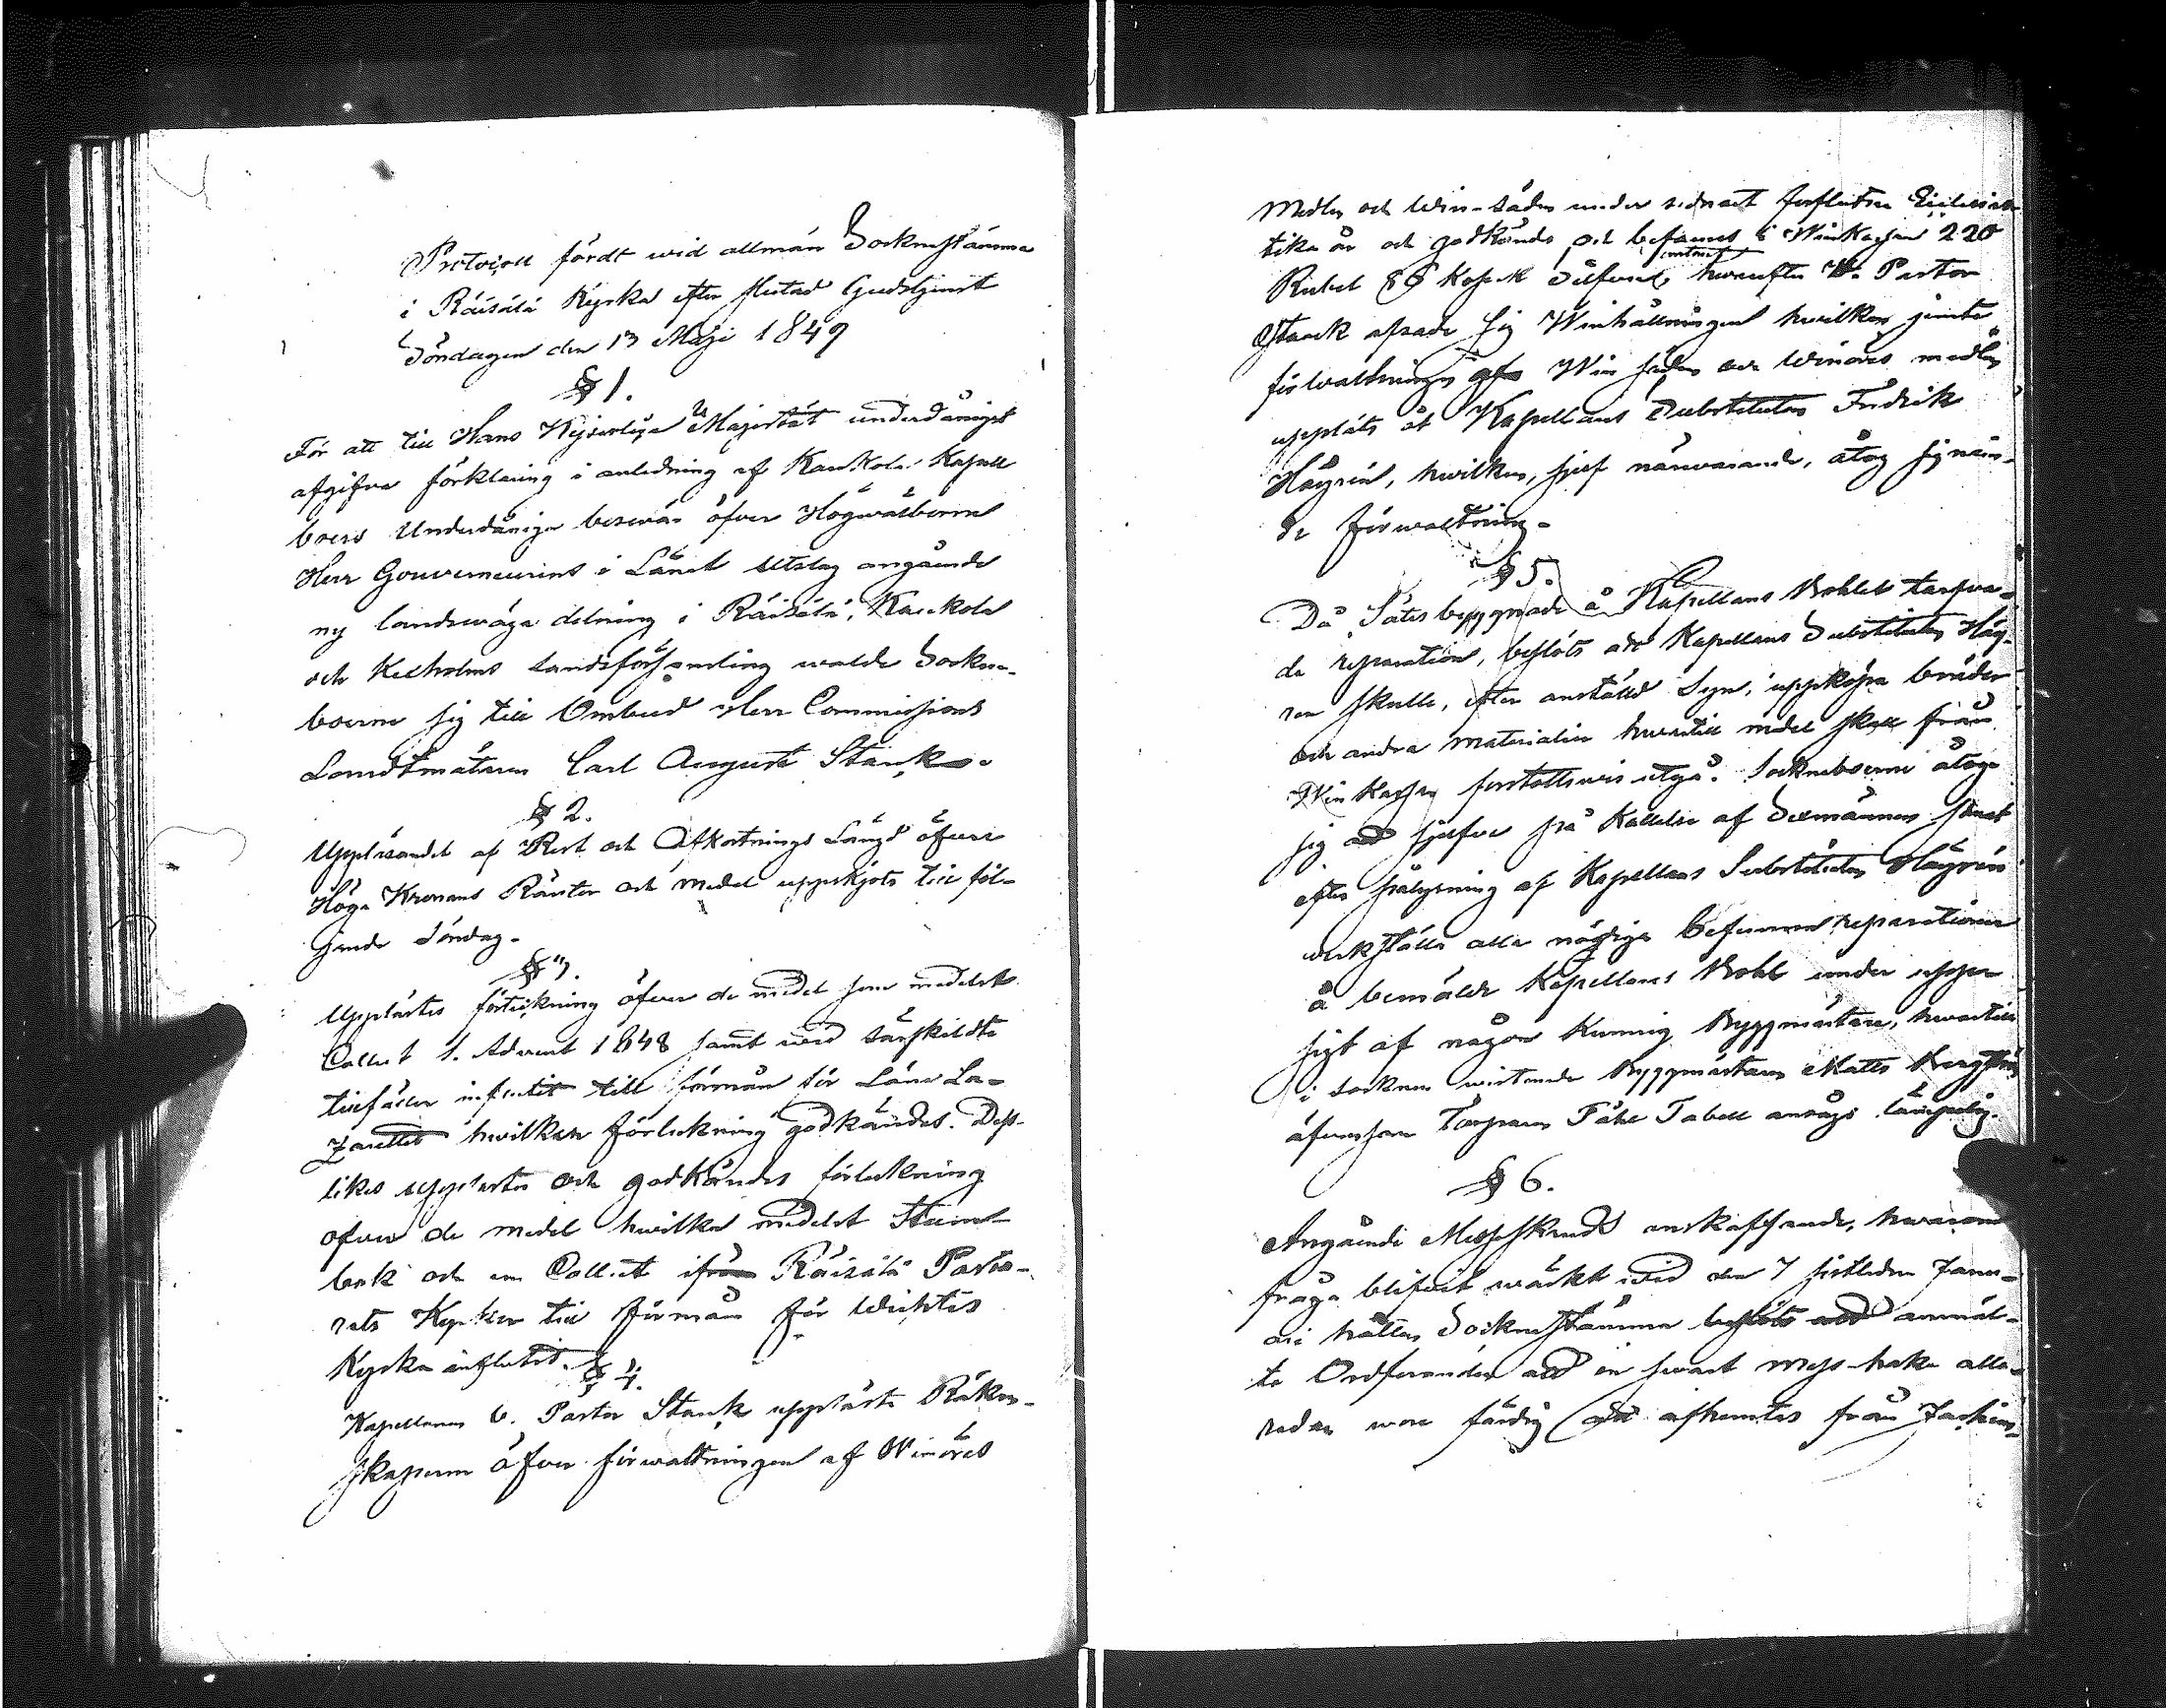 Protocoll fördt wid allmän Socknestämma
i Räisälä Kyrka efter slutad Gudstjenst
Söndagen den 13 Maji 1849
§ 1.
För att till Hans Kejserliga Majestät underdånigst
afgifva förklaring i anledning af Kaukola Kapell
boers Underdåniga beswär öfver Högwälborne
Herr Gouverneurens i Länet Utslag angående
ny landswäga delning i Räisälä, Kaukola
och Kexholms Landsförsamling walde Sockne-
boerne sig till Ombud Herr Commissions
Landtmätaren Carl August Stark.
§ 2.
Uppläsandet af Rest och Afkortnings Längd öfver
Höga Kronans Räntor och medel uppskjöts till föl-
jande Söndag.
§ 3.
Upplästes förteckning öfver de medel som medelst
Collect 1. Advent 1848 samt wid särskildta
tillfällen influtit till förmån för Läns La-
zarettet hwilken förteckning godkändes. Dess-
likes upplästes och godkändes förteckning
öfver de medel hwilka medelst Stam-
bok och en Collect ifrån Räisälä Pasto-
rats Kyrkor till förmån för Wichtis
Kyrka influtit.
§ 4.
Kapellanen V. Pastor Stark uppläste Räken-
skaperne öfver förwaltningen af Winöres
Medlen och Win-säden under sednast förflutna Ecclesias-
tika år och godkändes och befanns i WinKassan 220
Rubel 88 Kopek Silfver, hwarefter V. Pastor
Stark afsade sig Winhållningen hwilken jemte
förwaltningen af Win säden och Winöres medlen
uppläts åt Kapellans Substituten Fredrik
Häyrén, hwilken, sjelf närwarande, åtog sig näm-
de förwaltning.
§ 5.
Då Sätesbyggnad å Kapellans Bohlet tarfwa-
de reparation, beslöts att Kapellans Substituten Häy-
ren skulle, efter anställd Syn, uppköpa bräder
och andra materialier hwartill medel skall från
Win Kassan förskottswis utgå. Sockneboerne åtogo
sig att sjelfve på Kallelse af Sexmännen samt
efter pålysning af Kapellans Substituten Häyrén
werkställa alla nödiga befunna reparationer
å bemälde Kapellans Bohl under upp-
sigt af någon Kunnig Byggmästare, hwartill
i socknen wistande Byggmästaren Matts Bergström
äfvensom Torparen Påhl Tabell ansågs lämpelig.
§ 6.
Angående Messskruds anskaffande, hwarom
fråga blifwit wäckt wid den 7 sistleden Janu-
ari hållen Socknestämma beslöts att anmäl-
te Ordföranden att en swart mess-hake alla-
redan wore färdig att afhemtas från